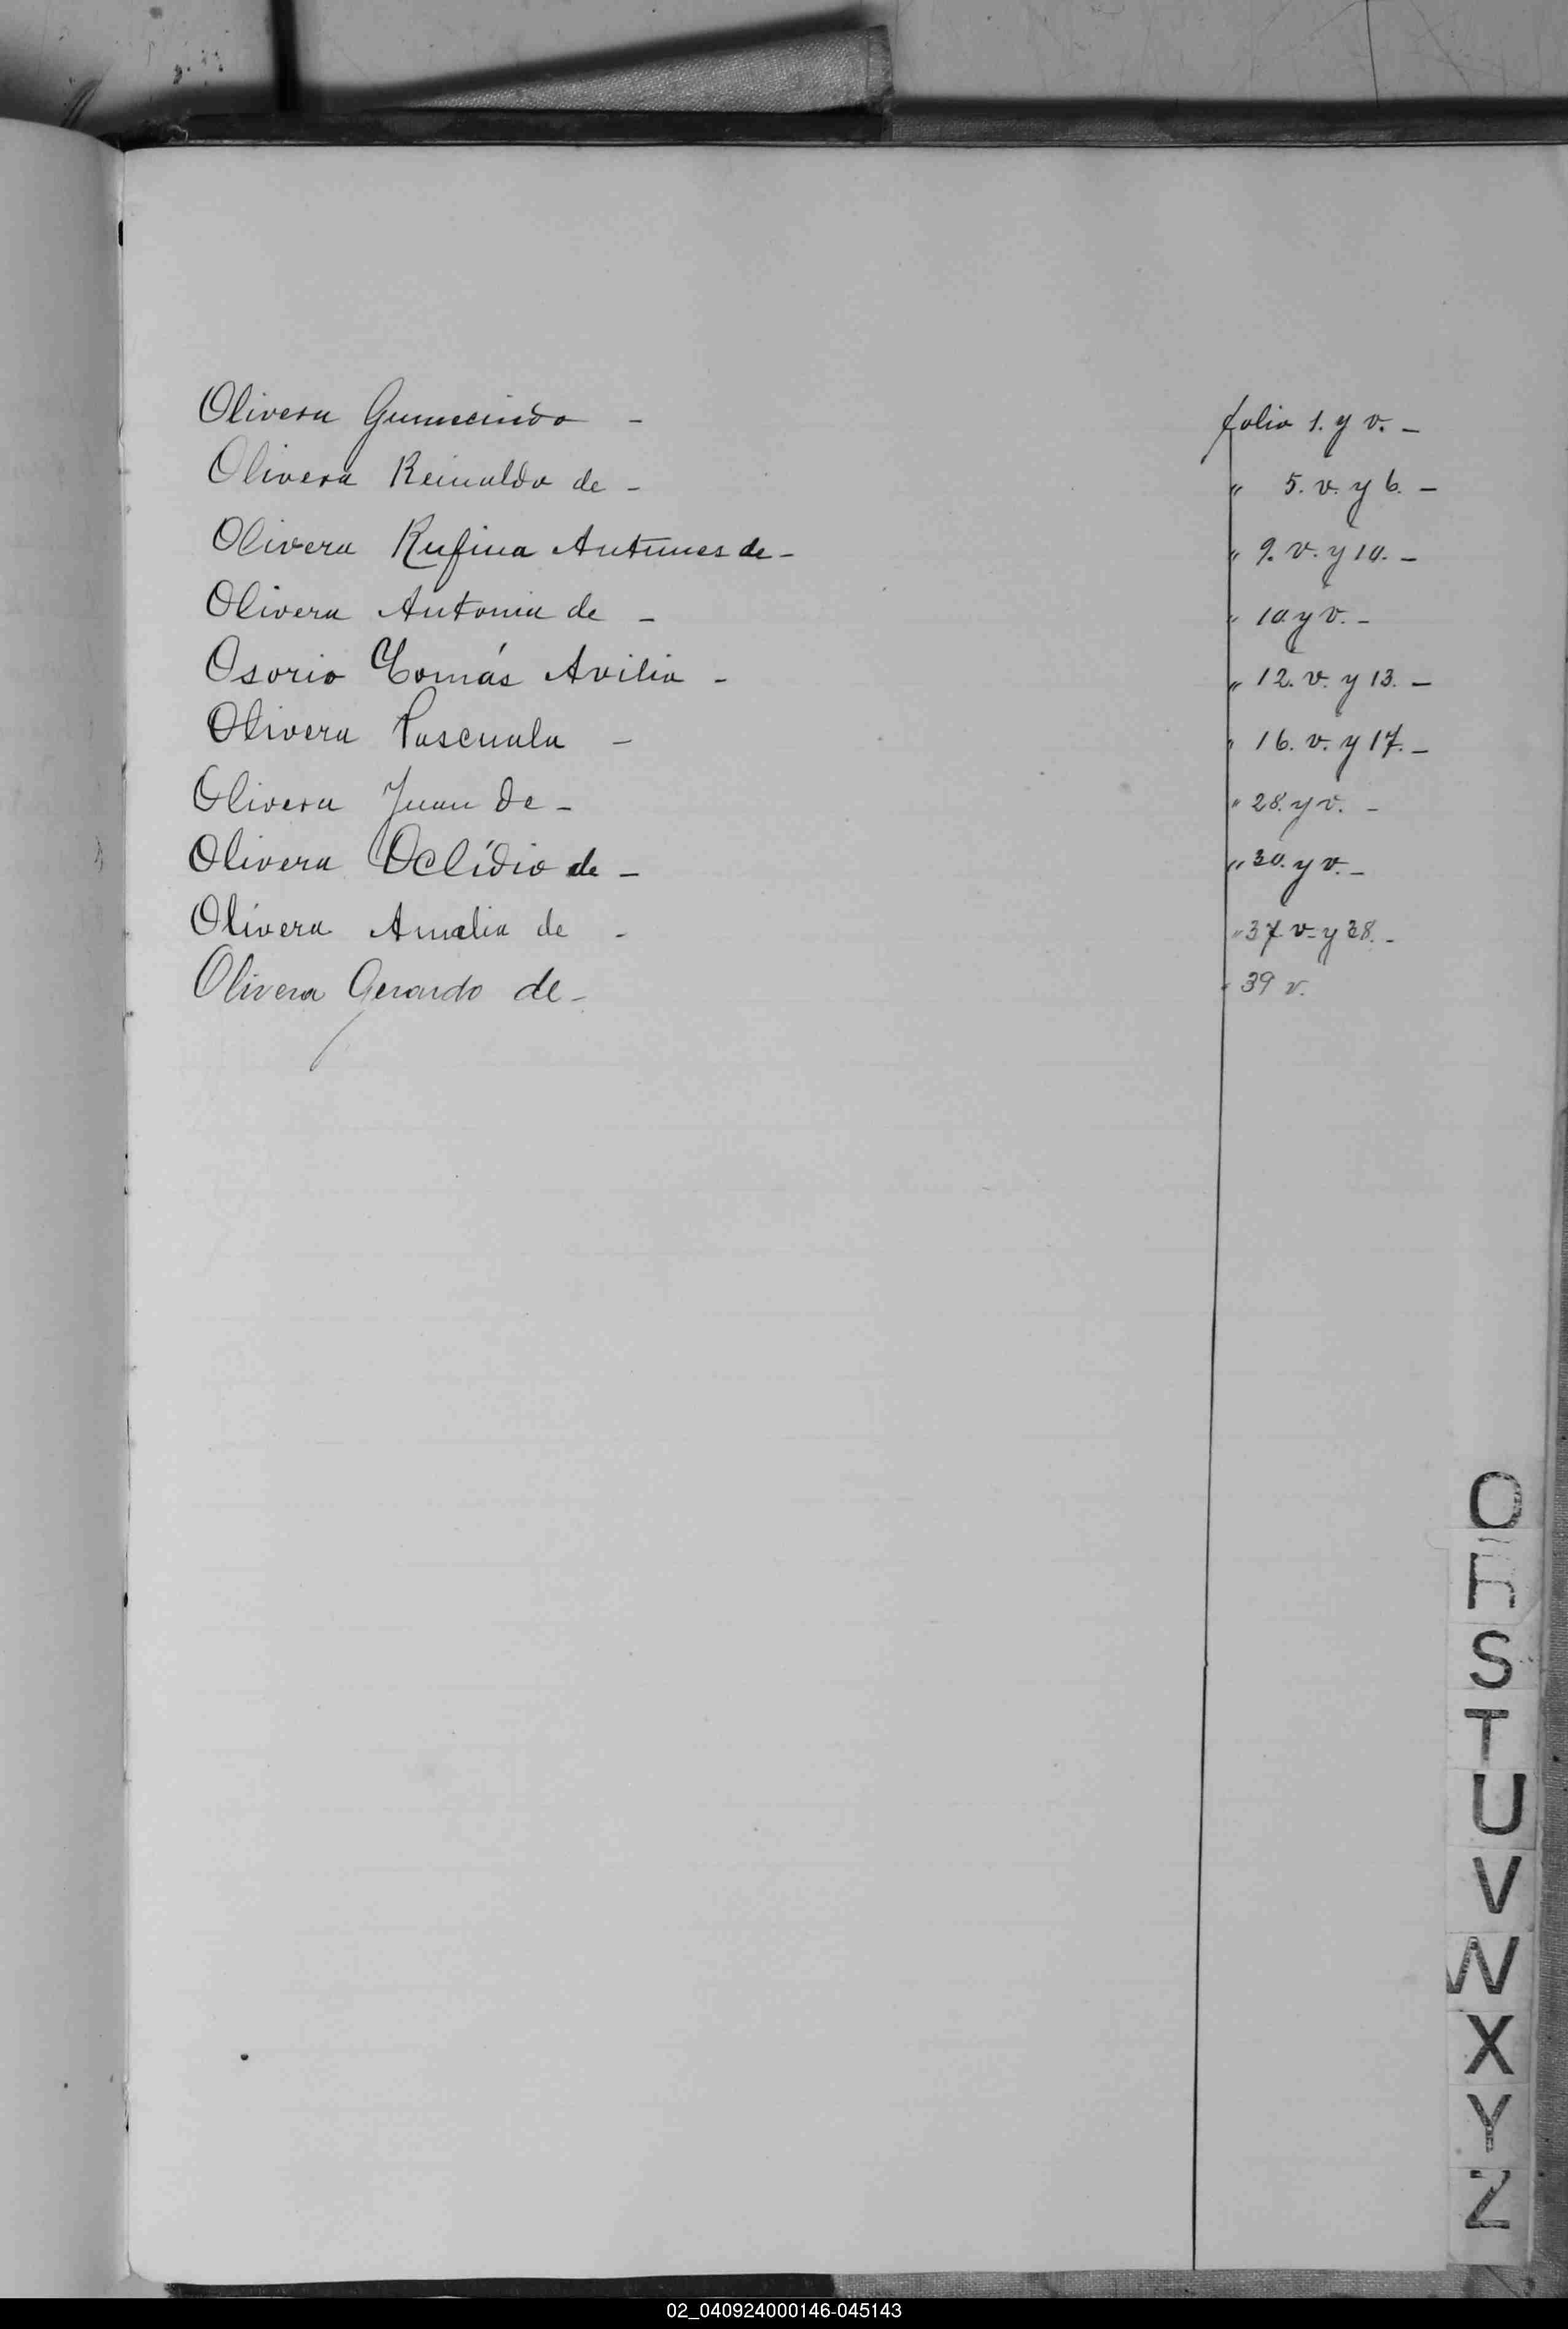 Olivera Gumecindo - folio 1. y v. -
Olivera Reinaldo de - " 5. v. y 6. -
Olivera Rufina Antunes de - " 9. v. y 10. -
Olivera Antonia de - " 10. y v. -
Osorio Tomás Avilio - " 12. v. y 13. -
Olivera Pascuala - " 16. v. y 17. -
Olivera Juan de - " 28. y v. -
Olivera Oclídio de - " 30. y v. -
Olivera Amalia de - " 37. v. y 38. -
Olivera Gerardo de - " 39 v.
O
R
S
T
U
V
W
X
Y
Z
02_040924000146-045143